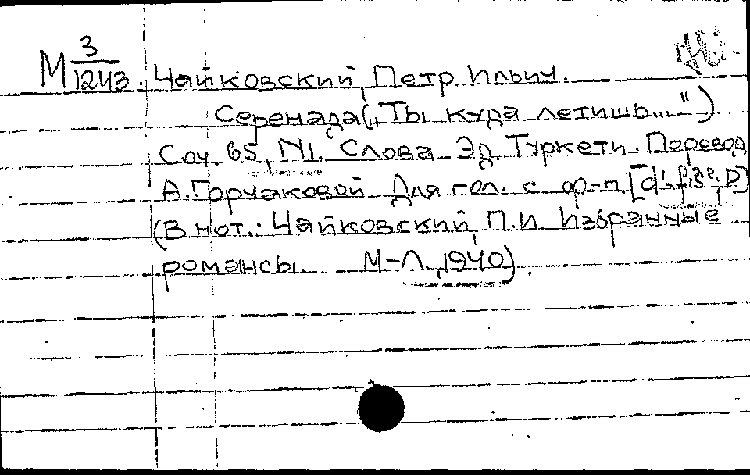 М 3/1243. Чайковский, Петр Ильич.
Серенада („Ты куда летишь...")
Соч. 65, №1. Слова Эд. Туркети. Перевод
А. Горчаковой. Для гол. с ф-п.
(В нот.: Чайковский, П.И. Избранные
романсы. М-Л, 1940)